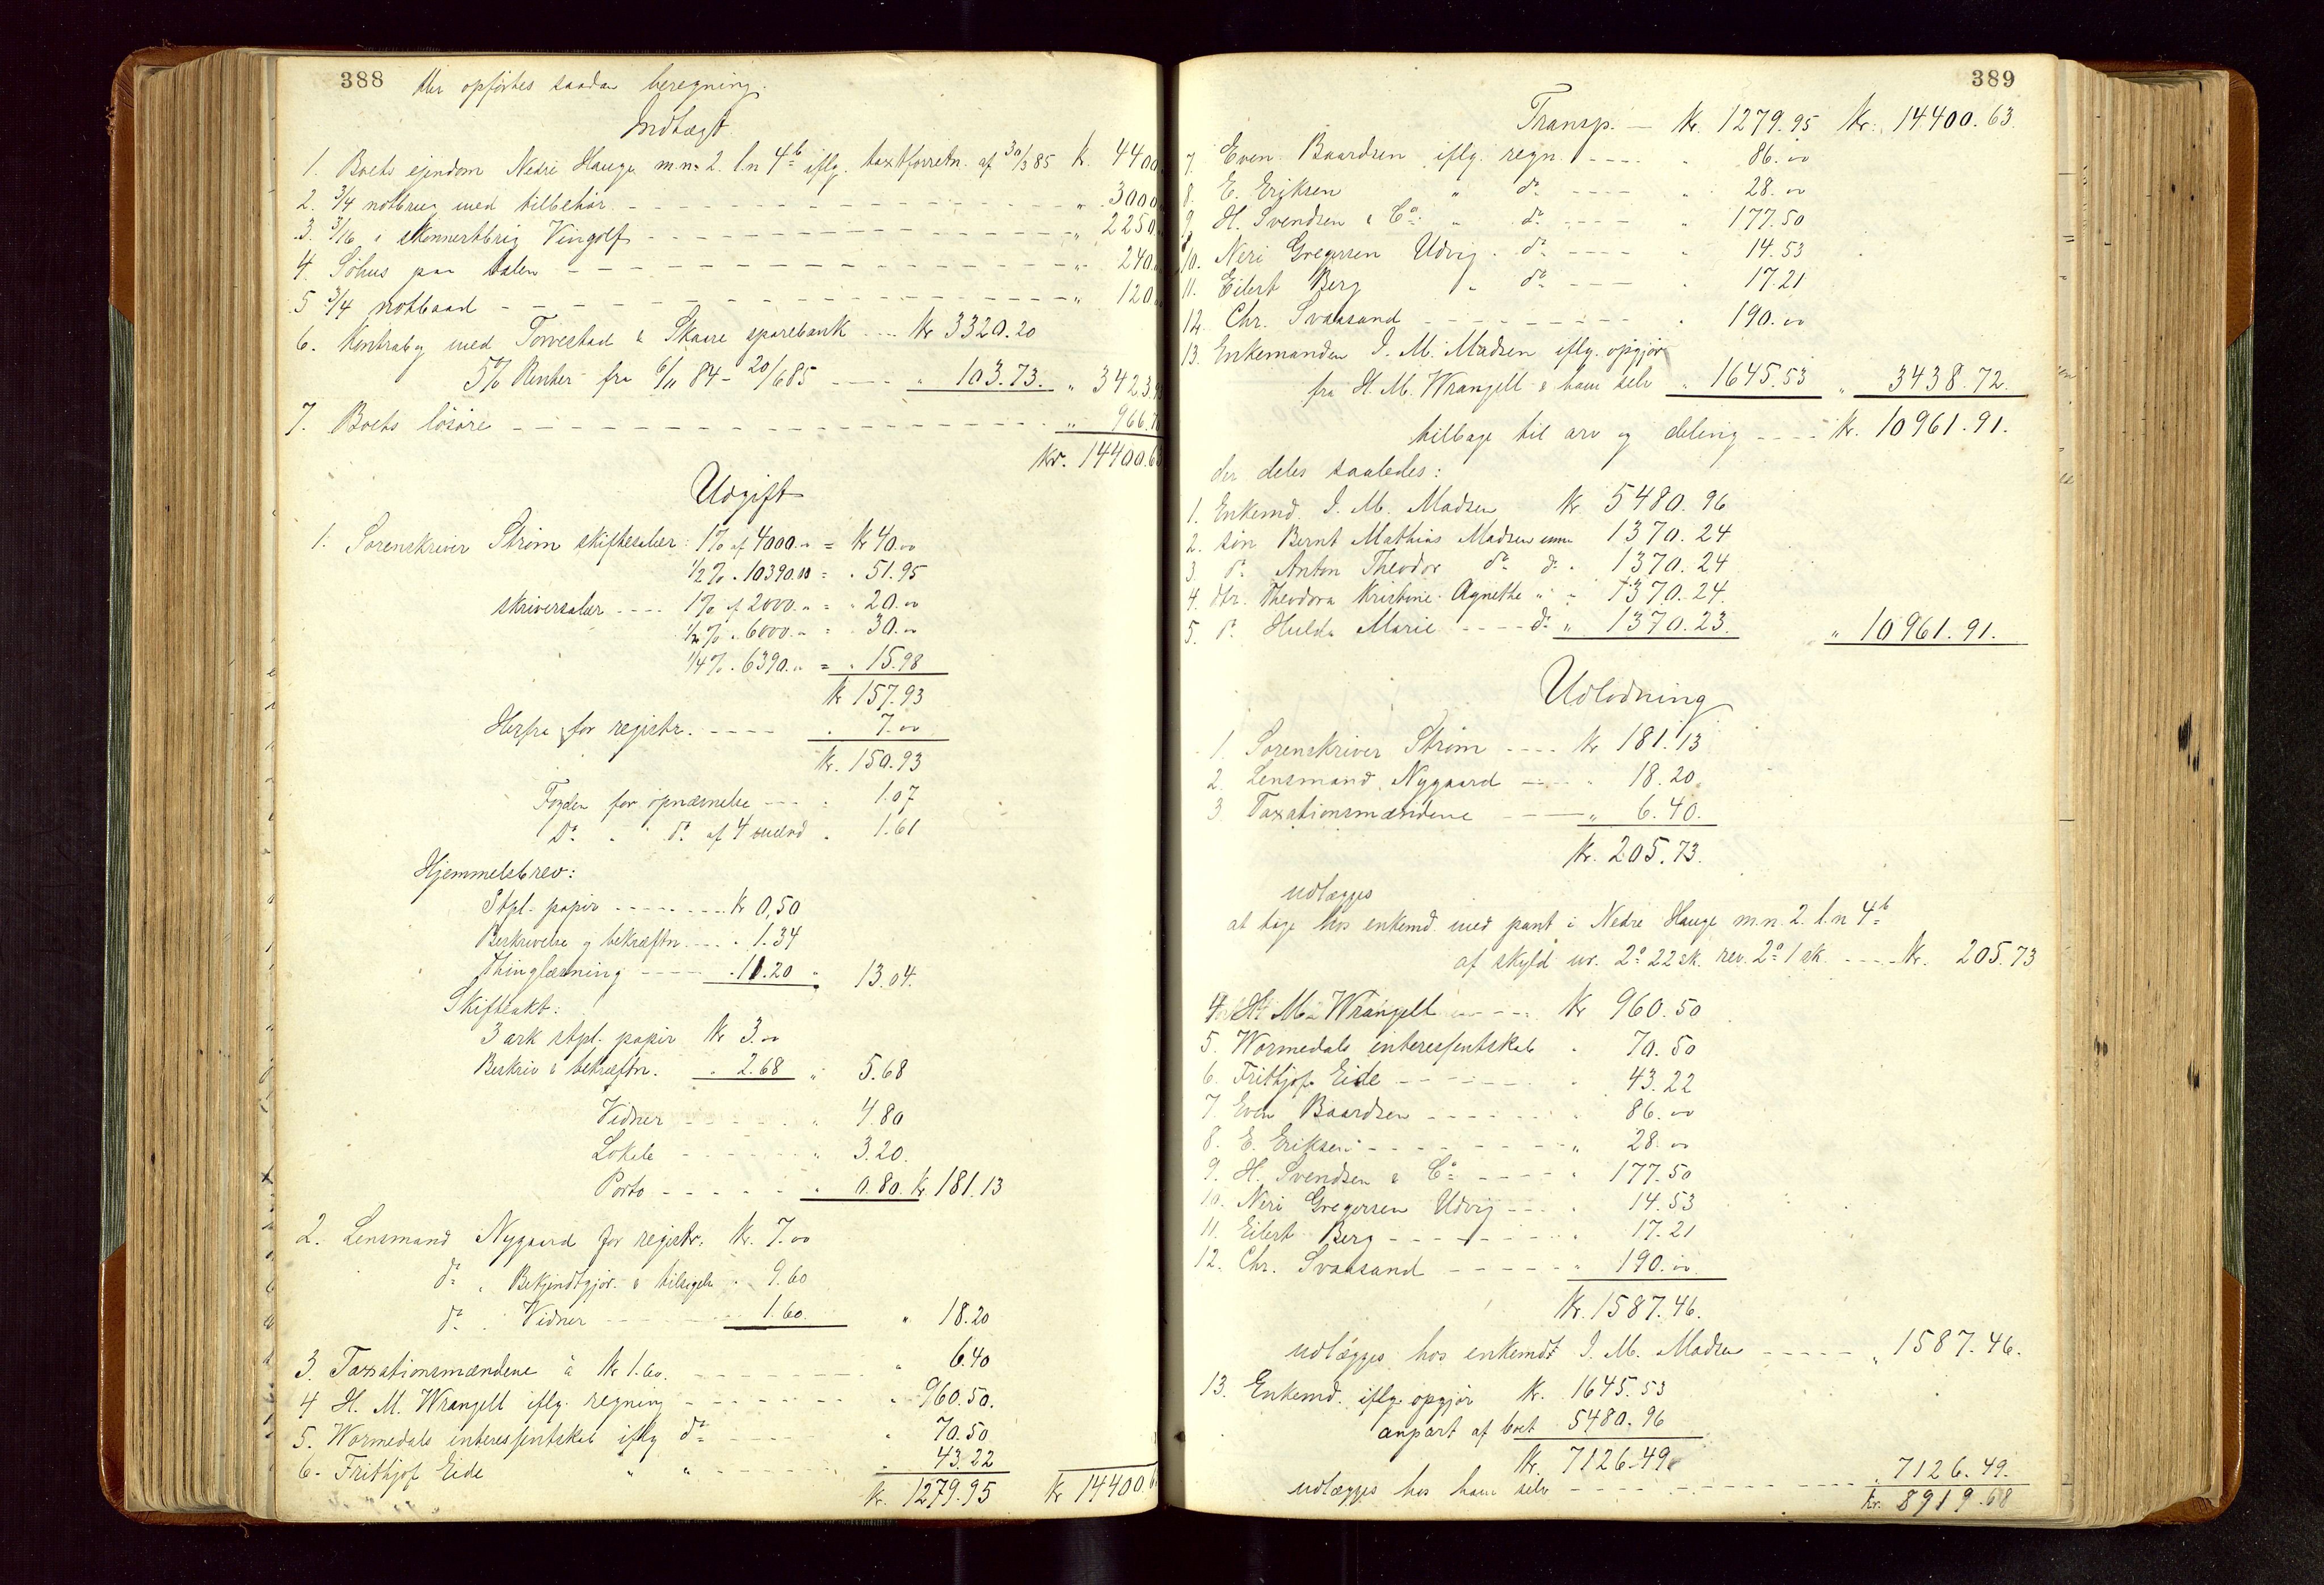 388
Her opførtes saadan beregning.
Indtægt
1. Boets eiendom Nedre Hauge m.n. 2. l.n 4b iflg. taxtforretn. af 30/3 85 K. 4400
2. 3/4 notbrug med tilbehør " 3000
3. 3/16 i skonnertbrig Vingolf " 2250
4. Søhus paa Valen " 240
5 3/4 notbaad " 120
6. Kontrabog med Torvestad & Skaare sparebank Kr 3320.20
5% Renter fra 6/11 84 - 20/6 85 " 103.73. " 3423.93
7. Boets løsøre " 966.70
Kr. 14400.63
Udgift
1. Sorenskriver Strøm skiftesalær: 1% af 4000.- = Kr 40.00
1/2% " 10390.00 = " 51.95
skriversalær 1% af 2000.- = " 20.00
1/2% " 6000.- = 30.00
1/4% " 6390.- = " 15.98
Kr 157.93
Herfra for registr. " 7.00
Kr. 150.93
Fogden for opnævnelse " 1.07
Do " do af 4 1.61
Hjemmelsbrev:
Stpl. papir Kr 0,50
Beskrivelse og bekræftn. " 1.34
Thinglæsning " 11.20 " 13.04.
Skifteakt:
3 ark stpl. papir Kr 3.00
Beskriv & bekræftn. " 2.68 " 5.68
Vidner " 4.80
Lokale " 3.20.
Porto " 0.80. Kr 181.13
2. Lensmand Nygaard for registr. Kr. 7.00
do " Bekjendtgjør. & tilsigelse " 9.60
do " Vidner 1.60. " 18.20
3. Taxationsmændene à Kr 1.60. " 6.40
4 H. M. Wrangell iflg. regning " 960.50.
5. Wormedals interessentskab iflg do " 70.50
6. Frithjof Eide " " " 43.22
Kr. 1279.95 Kr 14400.6
389
Transp. — Kr. 1279.95 Kr. 14400.63.
7. Even Baardsen iflg. regn. " 86.00
8. E. Eriksen " do " 28.00
9. H. Svendsen & Co. " do " 177.50
10. Neri Gregersen Udvig " do " 14.53
11. Eilert Berg " do " 17.21
12. Chr. Svaasand " 190.00
13. Enkemanden J. M. Madsen iflg. opgjør
fra H. M. Wrangell & ham selv " 1645.53 " 3438.72.
tilbage til arv og deling Kr. 10961.91.
der deles saaledes:
1. Enkemd. J. M. Madsen Kr 5480.96
2. søn Bernt Mathias Madsen 1370.24
3. do Anton Theodor do do " 1370.24
4. dtr. Theodora Kristine Agnethe " " 1370.24.
5. do Hulda Marie do " 1370.23. " 10961.91.
Udlodning
1. Sorenskriver Strøm Kr 181.13
2. Lensmand Nygaard " 18.20.
3 Taxationsmændene " 6.40.
Kr. 205.73.
udlægges
at tage hos enkemd. med pant i Nedre Hauge m.n. 2. l.n 4b
af skyld ur. 2d 22 sk. rev. 2d 1 sk. Kr. 205.73
4. H. M. Wrangell Kr 960.50
5. Wormedals interessentskab " 70.50
6. Frithjof Eide " 43.22
7. Even Baardsen " 86.00
8. E. Eriksen " 28.00
9. H. Svendsen & Co " 177.50
10. Neri Gregersen Udvig " 14.53
11. Eilert Berg " 17.21
12. Chr. Svaasand " 190.00
Kr. 1587.46.
udlægges hos enkemd J. M. Madsen " 1587.46.
13. Enkemd. iflg. opgjør Kr. 1645.53
anpart af boet 5480.96
Kr. 7126.49
udlægges hos ham selv " 7126.49.
Kr. 8919.68